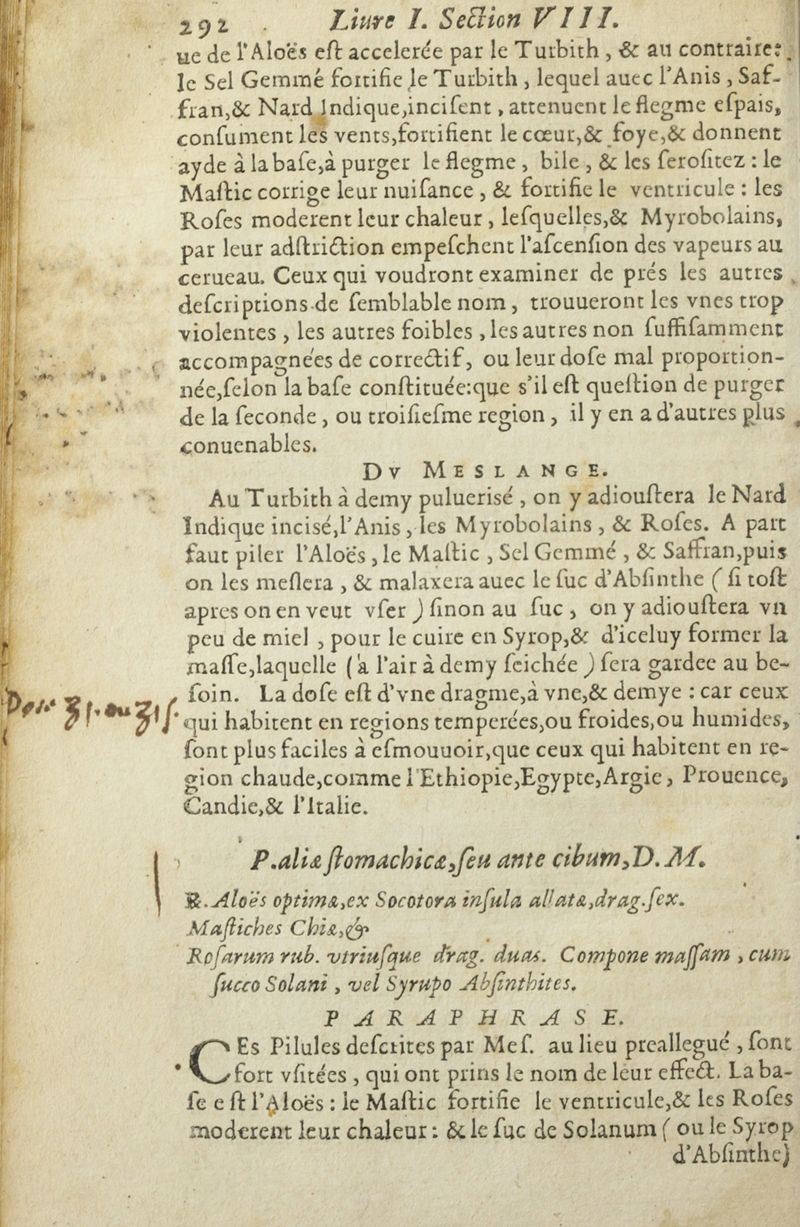 292 . Liure I. Section VIII.
ue de l'Aloës eſt accelerée par le Turbith, & au contraire:
le Sel Gemmé fortifie le Turbith, lequel auec l'Anis, Saf-
fran,& Nard Indique,inciſent, attenuent le flegme eſpais,
conſument les vents,fortifient le cœur,& foye,& donnent
ayde à la baſe,à purger le flegme, bile, & les ſeroſitez : le
Maſtic corrige leur nuiſance, & fortifie le ventricule : les
Roſes moderent leur chaleur, leſquelles,& Myrobolains,
par leur adſtriction empeſchent l'aſcenſion des vapeurs au
cerueau. Ceux qui voudront examiner de prés les autres
deſcriptions de ſemblable nom, trouueront les vnes trop
violentes, les autres foibles, les autres non ſuffiſamment
accompagnées de correctif, ou leur doſe mal proportion-
née,ſelon la baſe conſtituée:que s'il eſt queſtion de purger
de la ſeconde, ou troiſieſme region, il y en a d'autres plus
conuenables.
DV MESLANGE.
Au Turbith à demy puluerisé, on y adiouſtera le Nard
Indique incisé,l'Anis, les Myrobolains, & Roſes. A part
faut piler l'Aloës, le Maſtic, Sel Gemmé, & Saffran,puis
on les meſlera, & malaxera auec le ſuc d'Abſinthe (ſi toſt
apres on en veut vſer) ſinon au ſuc, on y adiouſtera vn
peu de miel, pour le cuire en Syrop,& d'iceluy former la
maſſe,laquelle (à l'air à demy ſeichée) ſera gardee au be-
ſoin. La doſe eſt d'vne dragme,à vne,& demye : car ceux
Dose ʒj. ou ʒjſ.
qui habitent en regions temperées,ou froides,ou humides,
ſont plus faciles à eſmouuoir,que ceux qui habitent en re-
gion chaude,comme l'Ethiopie,Egypte,Argie, Prouence,
Candie,& l'Italie.
P.aliæ ſtomachicæ,ſeu ante cibum,D.M.
℞.Aloës optimæ,ex Socotora inſula allatæ,drag.ſex.
Maſtiches Chiæ,&
Roſarum rub. vtriuſque drag. duas. Compone maſſam, cum
ſucco Solani, vel Syrupo Abſinthites.
PARAPHRASE.
CEs Pilules deſcrites par Meſ. au lieu preallegué, ſont
fort vſitées, qui ont prins le nom de leur effect. La ba-
ſe eſt l'Aloës : le Maſtic fortifie le ventricule,& les Roſes
moderent leur chaleur : & le ſuc de Solanum (ou le Syrop
d'Abſinthe)